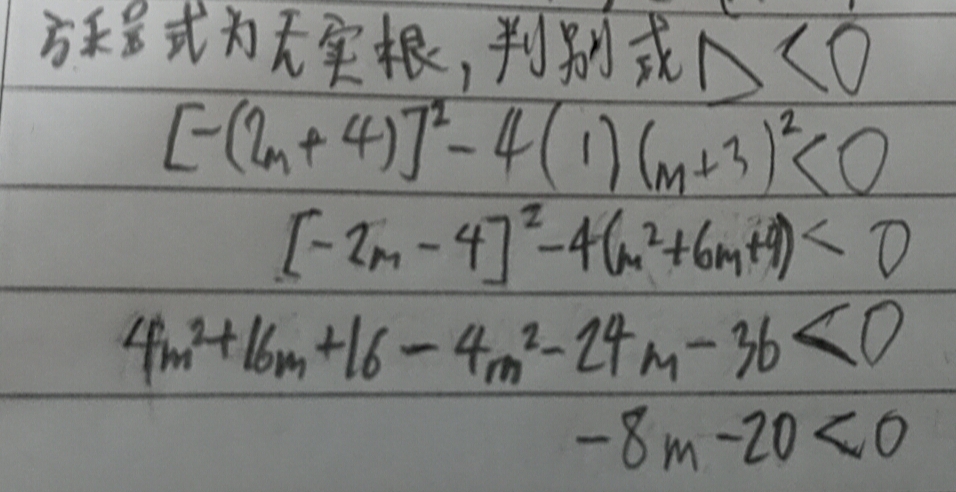 方程式为无实根,判别式△<0
[-(2m+4)]²-4(1)(m+3)²<0
[-2m-4]²-4(m²+6m+9)<0
4m²+16m+16-4m²-24m-36<0
-8m-20<0